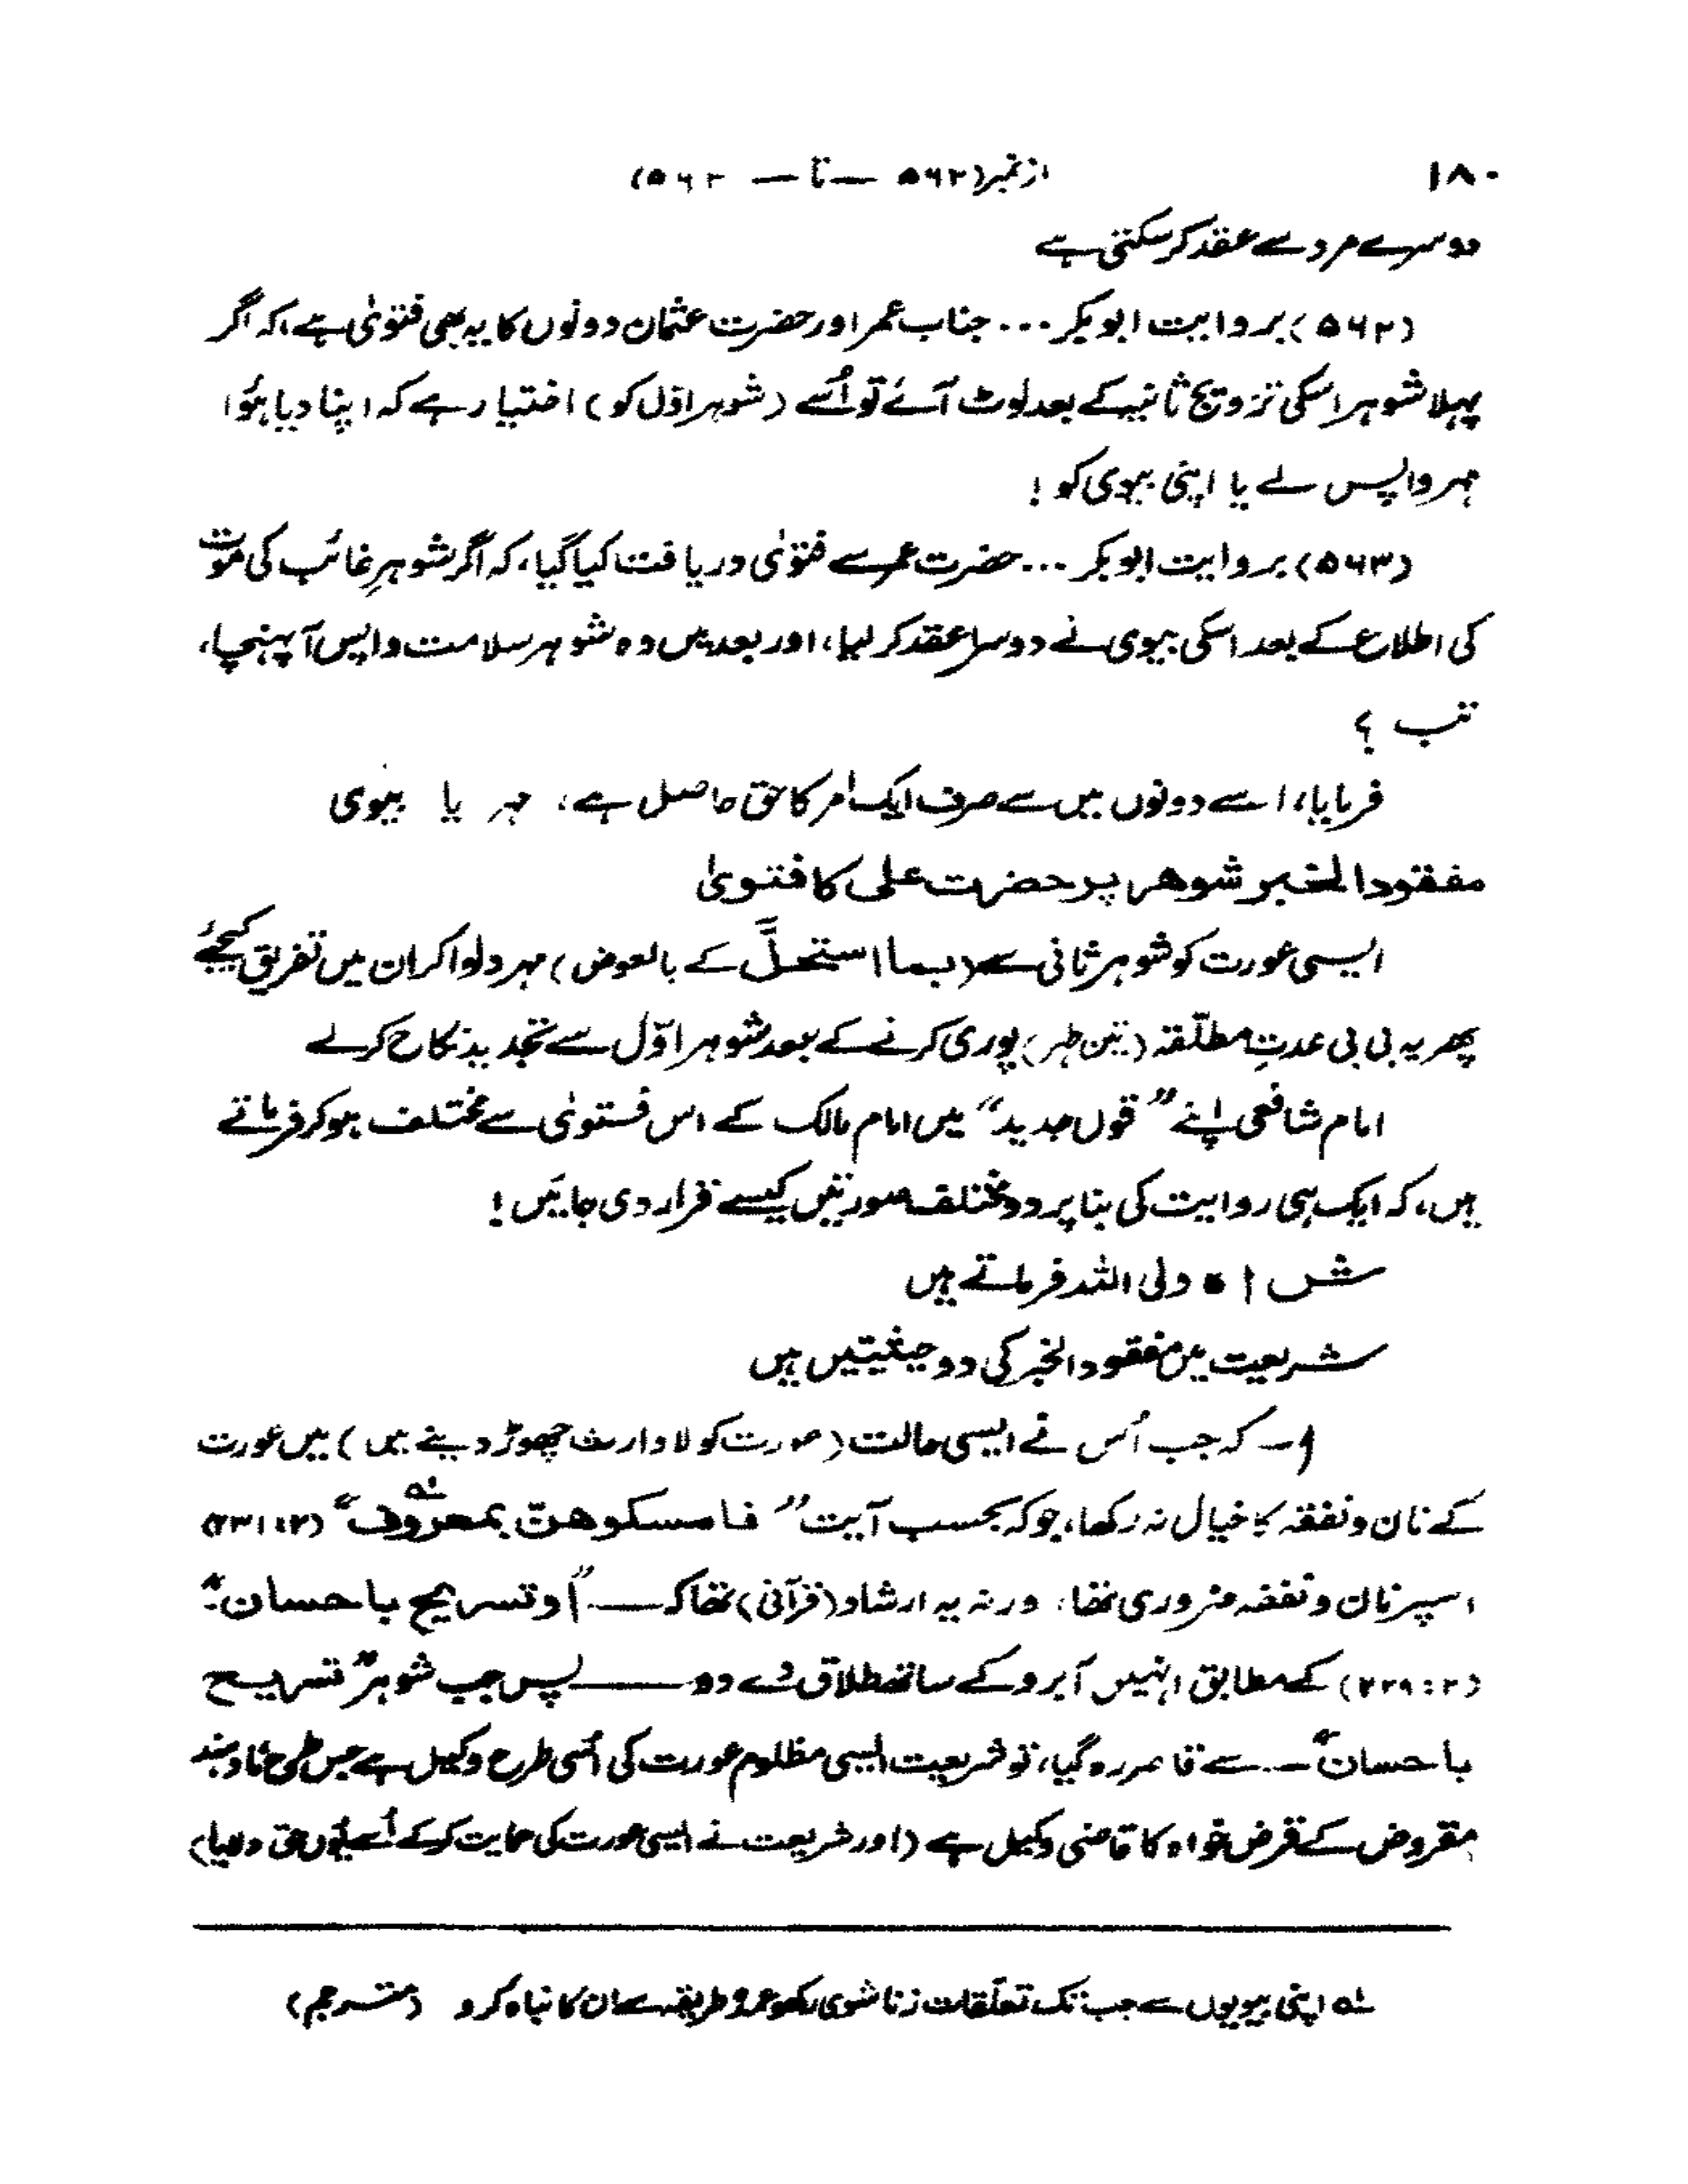 ۱۸۰ از نمبر (۵۶۲ — تا — ۵۶۳)
دوسرے مرد سے عقد کر سکتی ہے
(۵۶۲) بروایت ابوبکر ... جناب عمر اور حضرت عثمان دونوں کا یہ بھی فتویٰ ہے، کہ اگر
پہلا شوہر اسکی تزویج ثانیہ کے بعد لوٹ آئے تو اُسے (شوہر اوّل کو) اختیار ہے کہ اپنا دیا ہُوا
مہر واپس لے یا اپنی بیوی کو !
(۵۶۳) بروایت ابوبکر ... حضرت عمر سے فتویٰ دریافت کیا گیا، کہ اگر شوہرِ غائب کی موت
کی اطلاع کے بعد اسکی بیوی نے دوسرا عقد کر لیا، اور بعد میں وہ شوہر سلامت واپس آ پہنچا،
تب ؟
فرمایا، اسے دونوں میں سے صرف ایک امر کا حق حاصل ہے، مہر یا بیوی
مفقود الخبر شوھر پر حضرت علی کا فتویٰ
ایسی عورت کو شوہر ثانی سے (بما استحلَّ کے بالعوض) مہر دلوا کر ان میں تفریق کیجئے
پھر یہ بی بی عدتِ مطلّقہ (تین طہر) پوری کرنے کے بعد شوہر اوّل سے تجدید نکاح کر لے
امام شافعی اپنے ”قول جدید“ میں امام مالک کے اس فتویٰ سے مختلف ہو کر فرماتے
ہیں، کہ ایک ہی روایت کی بنا پر دو مختلف صورتیں کیسے قرار دی جائیں !
ش ا ہ ولی اللہ فرماتے ہیں
شریعت میں مفقود الخبر کی دو حیثیتیں ہیں
۱ — کہ جب اُس نے ایسی حالت (عورت کو لاوارث چھوڑ دینے میں) میں عورت
کے نان و نفقہ کا خیال نہ رکھا، جو کہ بحسب آیت ”فامسکوھن بمعروف“ ؎ (۲ : ۲۳۱)
اسپر نان و نفقہ ضروری تھا، ورنہ یہ ارشاد (قرآنی) تھا کہ — ”او تسریح باحسان“
(۲ : ۲۲۹) کے مطابق انہیں آبرو کے ساتھ طلاق دے دو — پس جب شوہر ”تسریح
باحسان“ — سے قاصر رہ گیا، تو شریعت ایسی مظلوم عورت کی اُسی طرح وکیل ہے جس طرح نادہند
مقروض کے قرض خواہ کا قاضی وکیل ہے (اور شریعت نے ایسی عورت کی حمایت کر کے اُسے یوں حق دلایا)
؎ اپنی بیویوں سے جب تک تعلّقات زنا شوی رکھو عمدہ طریقہ سے ان کا نباہ کرو (مترجم)